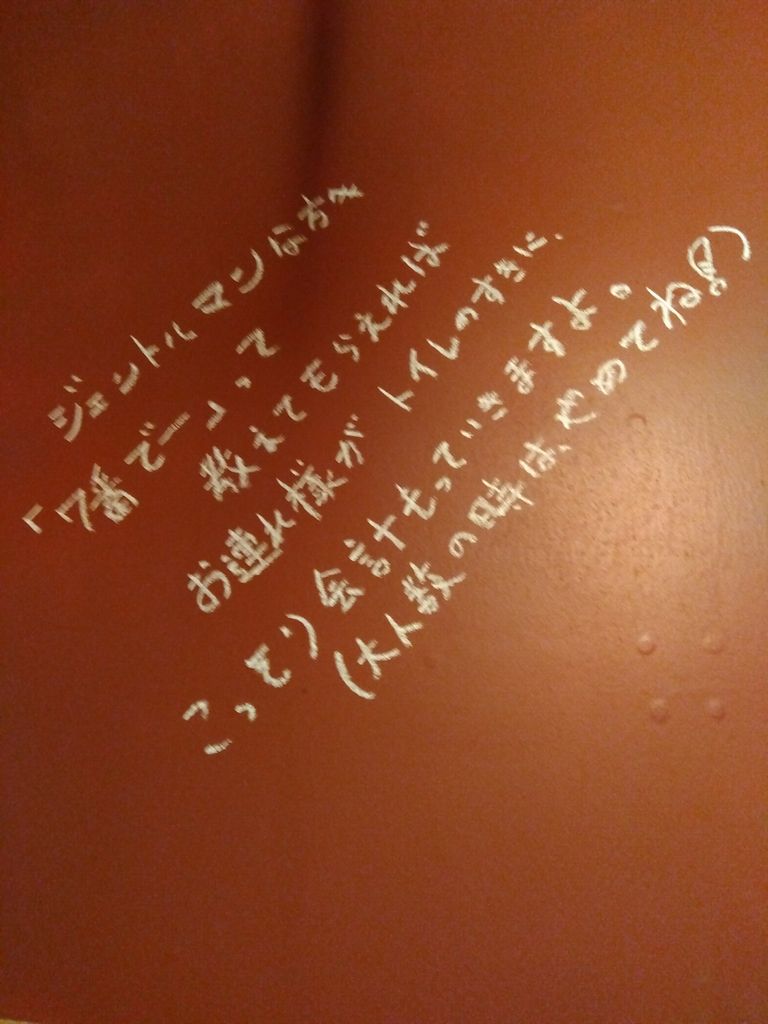 ジェントルマンな方え
「7番でー」って
教えてもらえれば
お連れ様がトイレのすきに、
こっそり会計もっていきますよ。
(大人数の時は、やめてネ)